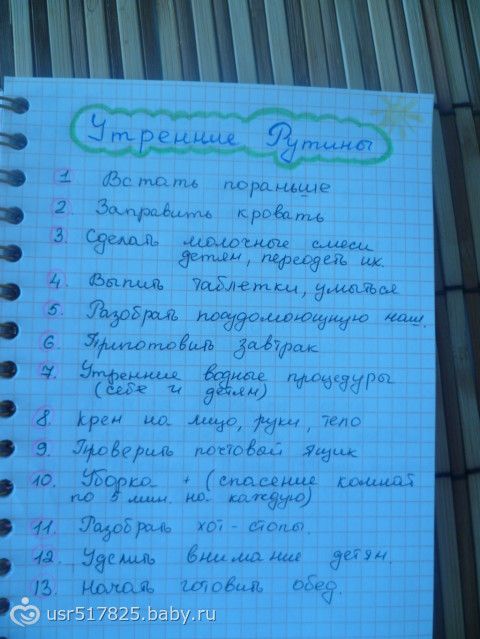 Утренние Рутины
1 Встать пораньше
2. Заправить кровать
3. Сделать молочные смеси
детям, переодеть их.
4. Выпить таблетки, умыться
5. Разобрать посудомоющную маш.
6 Приготовить завтрак
7. Утренние водные процедуры
(себе и детям)
8. крем на лицо, руки, тело
9. Проверить почтовый ящик
10. Уборка + (спасение комнат
по 5 мин. на каждую)
11. Разобрать хот-споты.
12. Уделить внимание детям.
13. Начать готовить обед.
usr517825.baby.ru